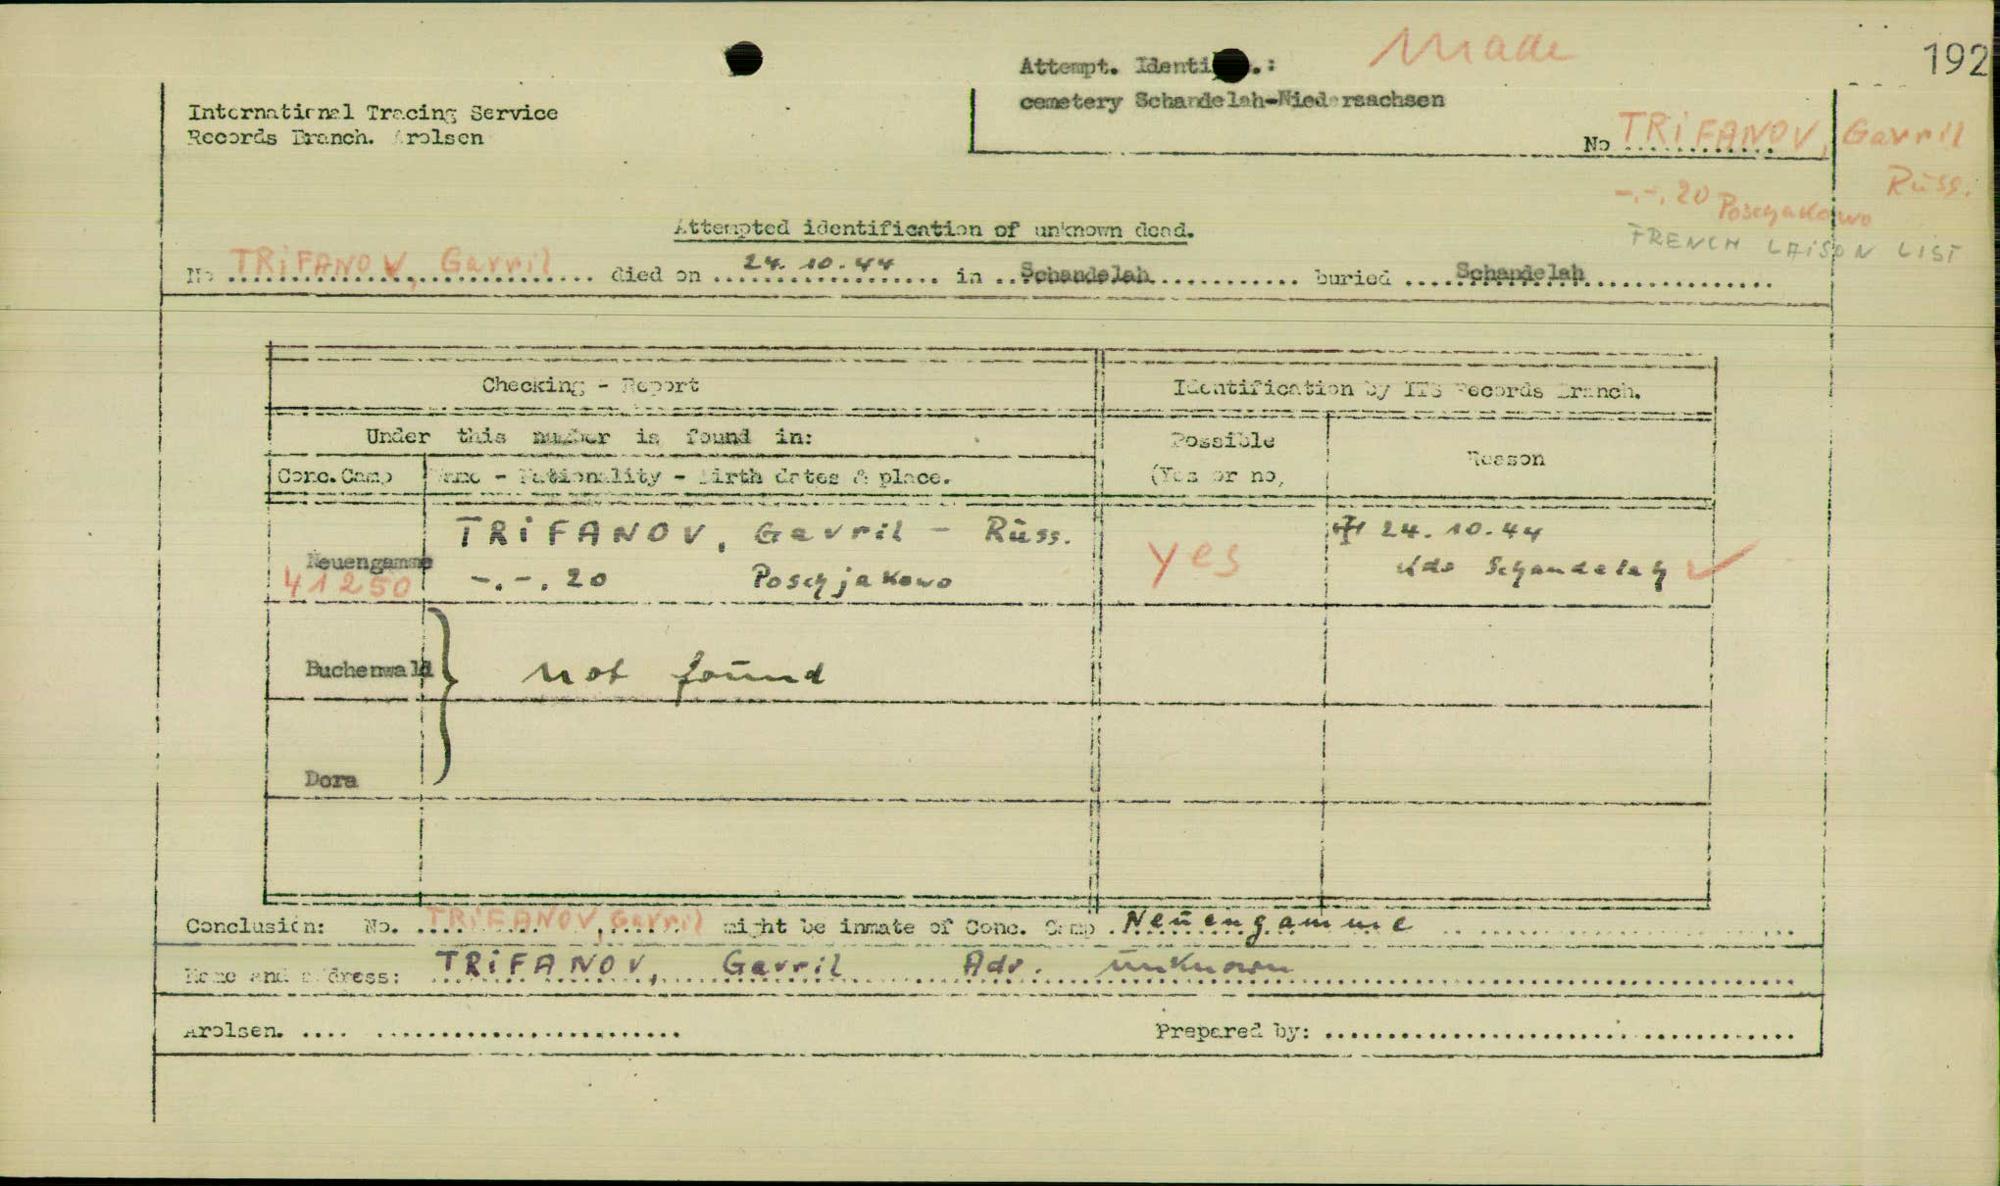 192
Made
Attempt. Identi .:
cemetery Schandelah-Niedersachsen
International Tracing Service
Records Branch. Arolsen
No TRiFANOV, Gavril
Rŭss.
-.-.20 Poschjakowo
FRENCH LAISON LIST
Attempted identification of unknown dead.
No TRiFANOV, Gavril died on 24.10.44 in Schandelah buried Schandelah
Checking - Report
Identification by ITS Records Branch.
Under this number is found in:
Possible
(Yes or no,
Reason
Conc.Camp
Name - Nationality - Birth dates & place.
Neuengamme
41250
TRiFANOV, Gavril - Rŭss.
-.-.20 Poschjakowo
yes
24.10.44
Kdo Schandelah
Buchenwald
not foŭnd
Dora
Conclusion: No. TRiFANOV, Gavril might be inmate of Conc. Camp Neŭengamme
Name and address: TRiFANOV, Gavril Adr. ŭnknown
Arolsen. .... .......................
Prepared by: ....................................